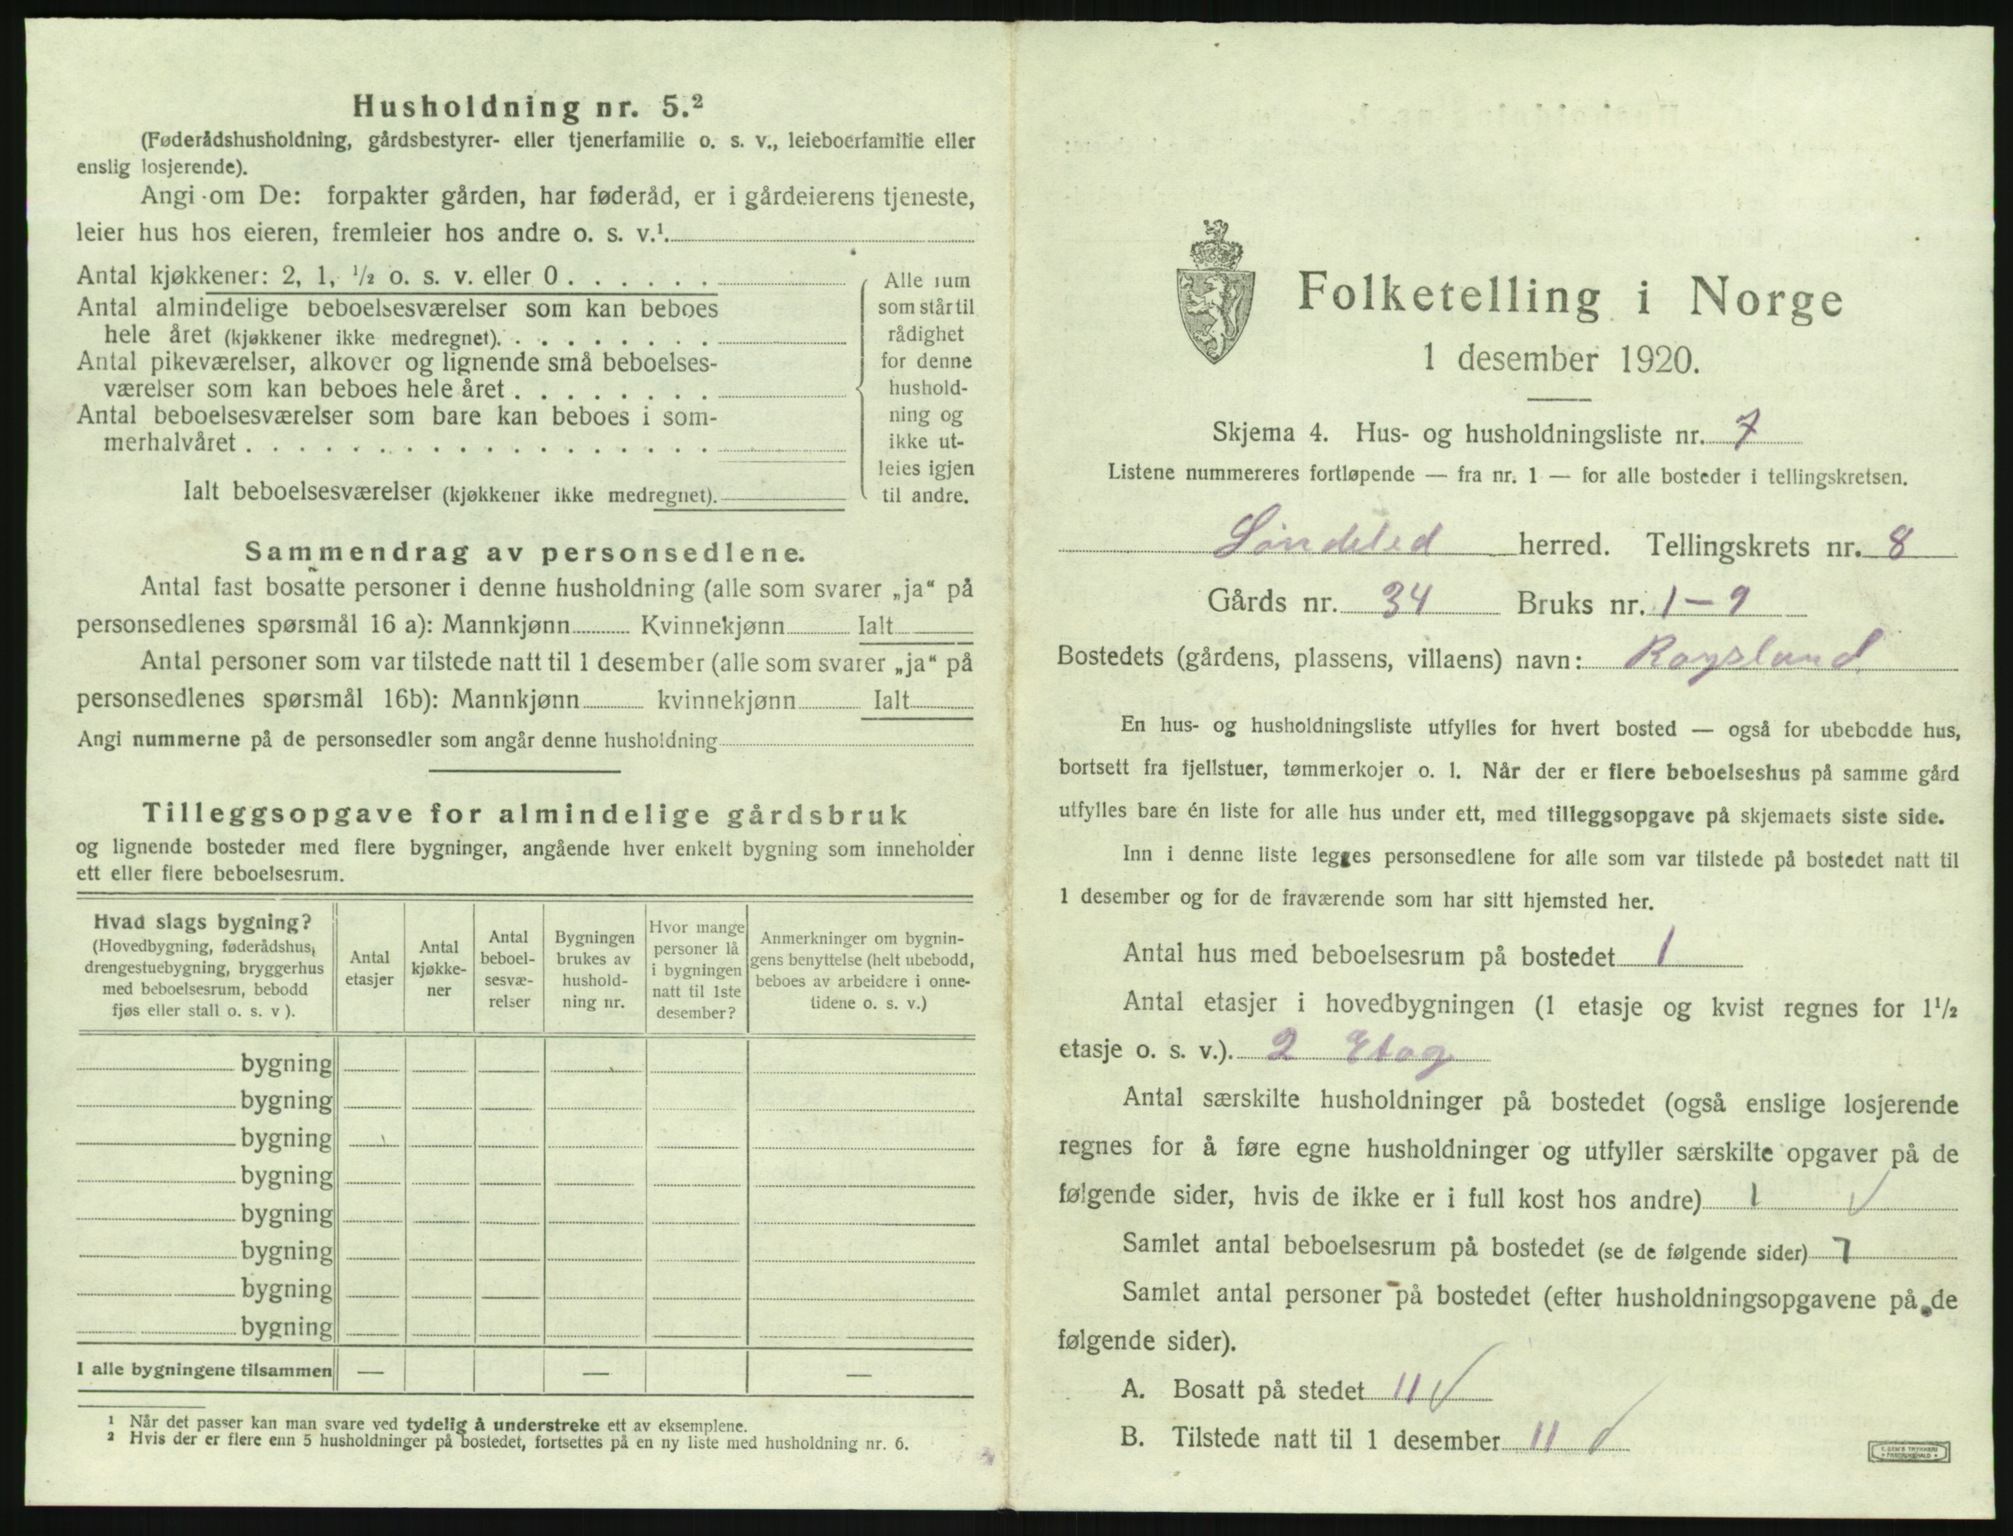 Husholdning nr. 5.²
(Føderådshusholdning, gårdsbestyrer- eller tjenerfamilie o. s. v., leieboerfamilie eller
enslig losjerende).
Angi om De: forpakter gården, har føderåd, er i gårdeierens tjeneste,
leier hus hos eieren, fremleier hos andre o. s. v.¹.
Antal kjøkkener: 2, 1, ½ o. s. v. eller 0 . . . . . .
Antal almindelige beboelsesværelser som kan beboes
hele året (kjøkkener ikke medregnet). . . . . . . . .
Antal pikeværelser, alkover og lignende små beboelses-
værelser som kan beboes hele året . . . . . . . .
Antal beboelsesværelser som bare kan beboes i som-
merhalvåret . . . . . . . . . . . . . . . . . .
Ialt beboelsesværelser (kjøkkener ikke medregnet).
Alle rum
som står til
rådighet
for denne
hushold-
ning og
ikke ut-
leies igjen
til andre.
Sammendrag av personsedlene.
Antal fast bosatte personer i denne husholdning (alle som svarer „ja“ på
personsedlenes spørsmål 16 a): Mannkjønn Kvinnekjønn Ialt
Antal personer som var tilstede natt til 1 desember (alle som svarer „ja“ på
personsedlenes spørsmål 16b): Mannkjønn kvinnekjønn Ialt
Angi nummerne på de personsedler som angår denne husholdning
Tilleggsopgave for almindelige gårdsbruk
og lignende bosteder med flere bygninger, angående hver enkelt bygning som inneholder
ett eller flere beboelsesrum.
Hvad slags bygning?
(Hovedbygning, føderådshus,
drengestuebygning, bryggerhus
med beboelsesrum, bebodd
fjøs eller stall o. s. v ).
Antal
etasjer
Antal
kjøkke-
ner
Antal
beboel-
sesvæ-
relser
Bygningen
brukes av
hushold-
ning nr.
Hvor mange
personer lå
i bygningen
natt til 1ste
desember?
Anmerkninger om bygnin-
gens benyttelse (helt ubebodd,
beboes av arbeidere i onne-
tidene o. s. v.)
bygning
bygning
bygning
bygning
bygning
bygning
bygning
bygning
I alle bygningene tilsammen — — —
¹ Når det passer kan man svare ved tydelig å understreke ett av eksemplene.
² Hvis der er flere enn 5 husholdninger på bostedet, fortsettes på en ny liste med husholdning nr. 6.
Folketelling i Norge
1 desember 1920.
Skjema 4. Hus- og husholdningsliste nr. 7
Listene nummereres fortløpende — fra nr. 1 — for alle bosteder i tellingskretsen.
Søndeled herred. Tellingskrets nr. 8
Gårds nr. 34 Bruks nr. 1-9
Bostedets (gårdens, plassens, villaens) navn: Røysland
En hus- og husholdningsliste utfylles for hvert bosted — også for ubebodde hus,
bortsett fra fjellstuer, tømmerkojer o. l. Når der er flere beboelseshus på samme gård
utfylles bare én liste for alle hus under ett, med tilleggsopgave på skjemaets siste side.
Inn i denne liste legges personsedlene for alle som var tilstede på bostedet natt til
1 desember og for de fraværende som har sitt hjemsted her.
Antal hus med beboelsesrum på bostedet 1
Antal etasjer i hovedbygningen (1 etasje og kvist regnes for 1½
etasje o. s. v.). 2 Etag
Antal særskilte husholdninger på bostedet (også enslige losjerende
regnes for å føre egne husholdninger og utfyller særskilte opgaver på de
følgende sider, hvis de ikke er i full kost hos andre) 1 ✓
Samlet antal beboelsesrum på bostedet (se de følgende sider) 7
Samlet antal personer på bostedet (efter husholdningsopgavene på de
følgende sider).
A. Bosatt på stedet 11 ✓
B. Tilstede natt til 1 desember 11 ✓